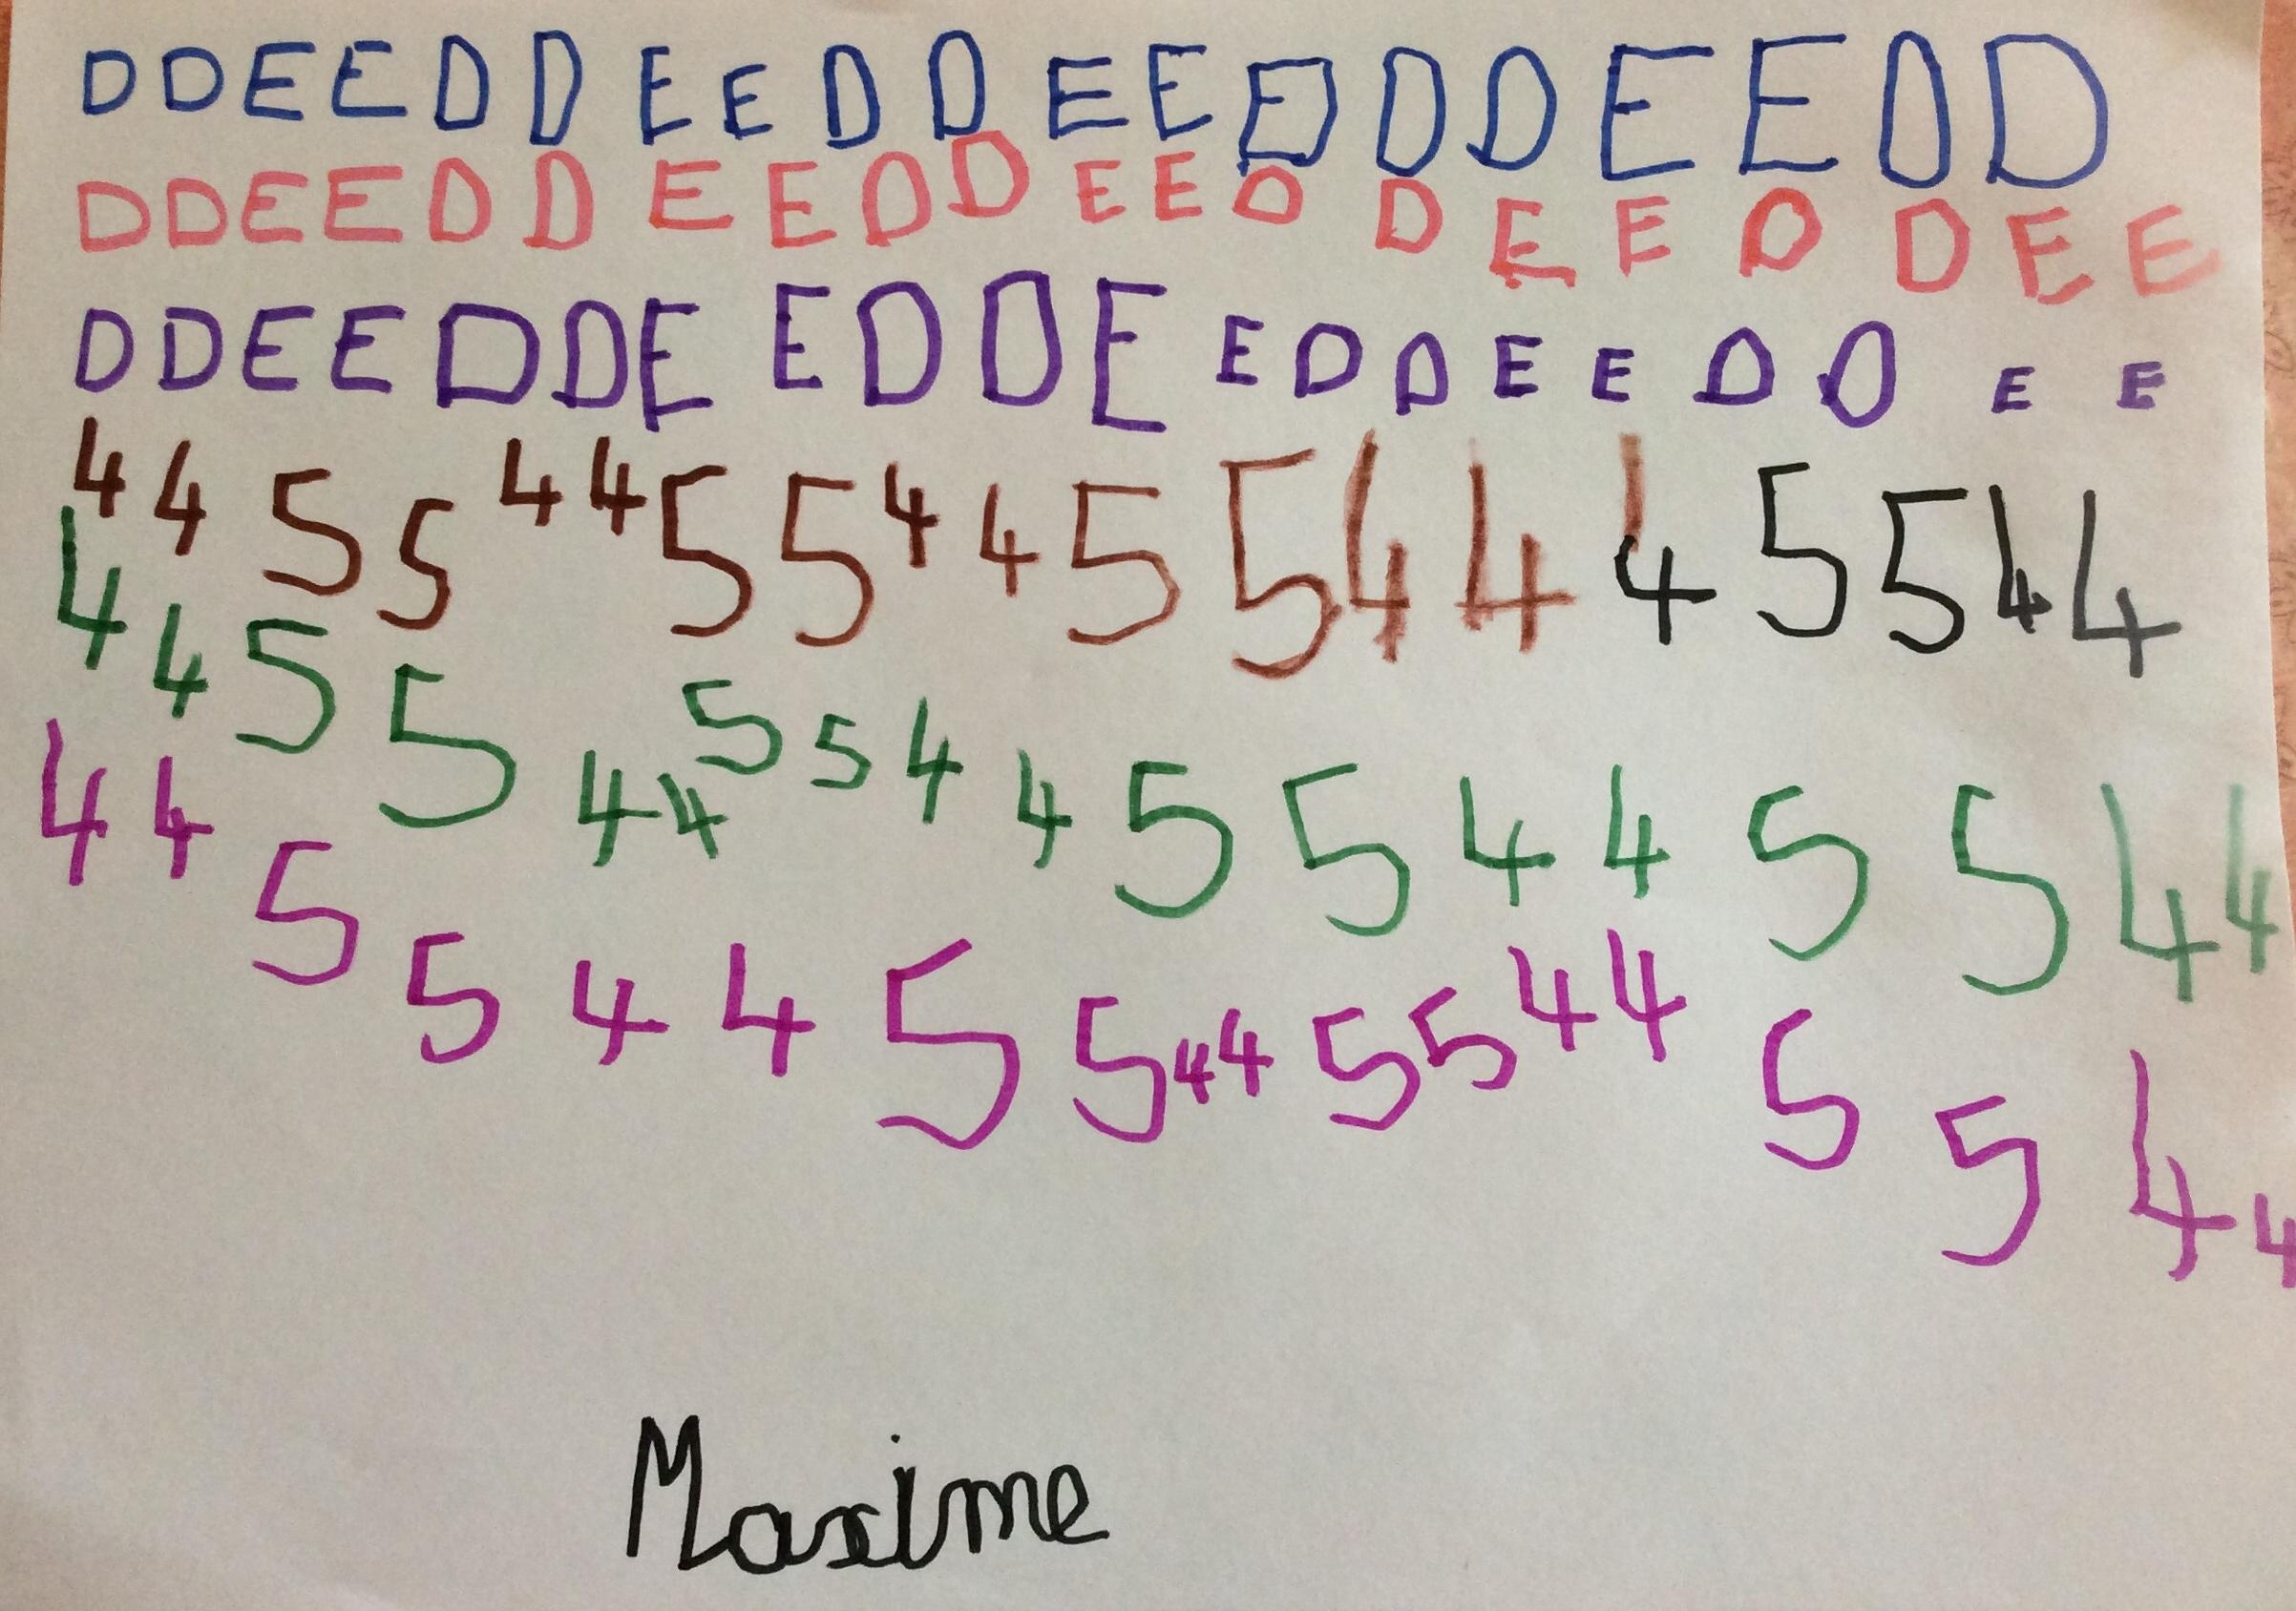 D D E E D D E E D D E E D D D E E D D
D D E E D D E E D D E E D D E E D D E E
D D E E D D E E D D E E D D E E D D E E
4 4 5 5 4 4 5 5 4 4 5 5 4 4 4 5 5 4 4
4 4 5 5 4 4 5 5 4 4 5 5 4 4 5 5 4 4
4 4 5 5 4 4 5 5 4 4 5 5 4 4 5 5 4 4
Maxime